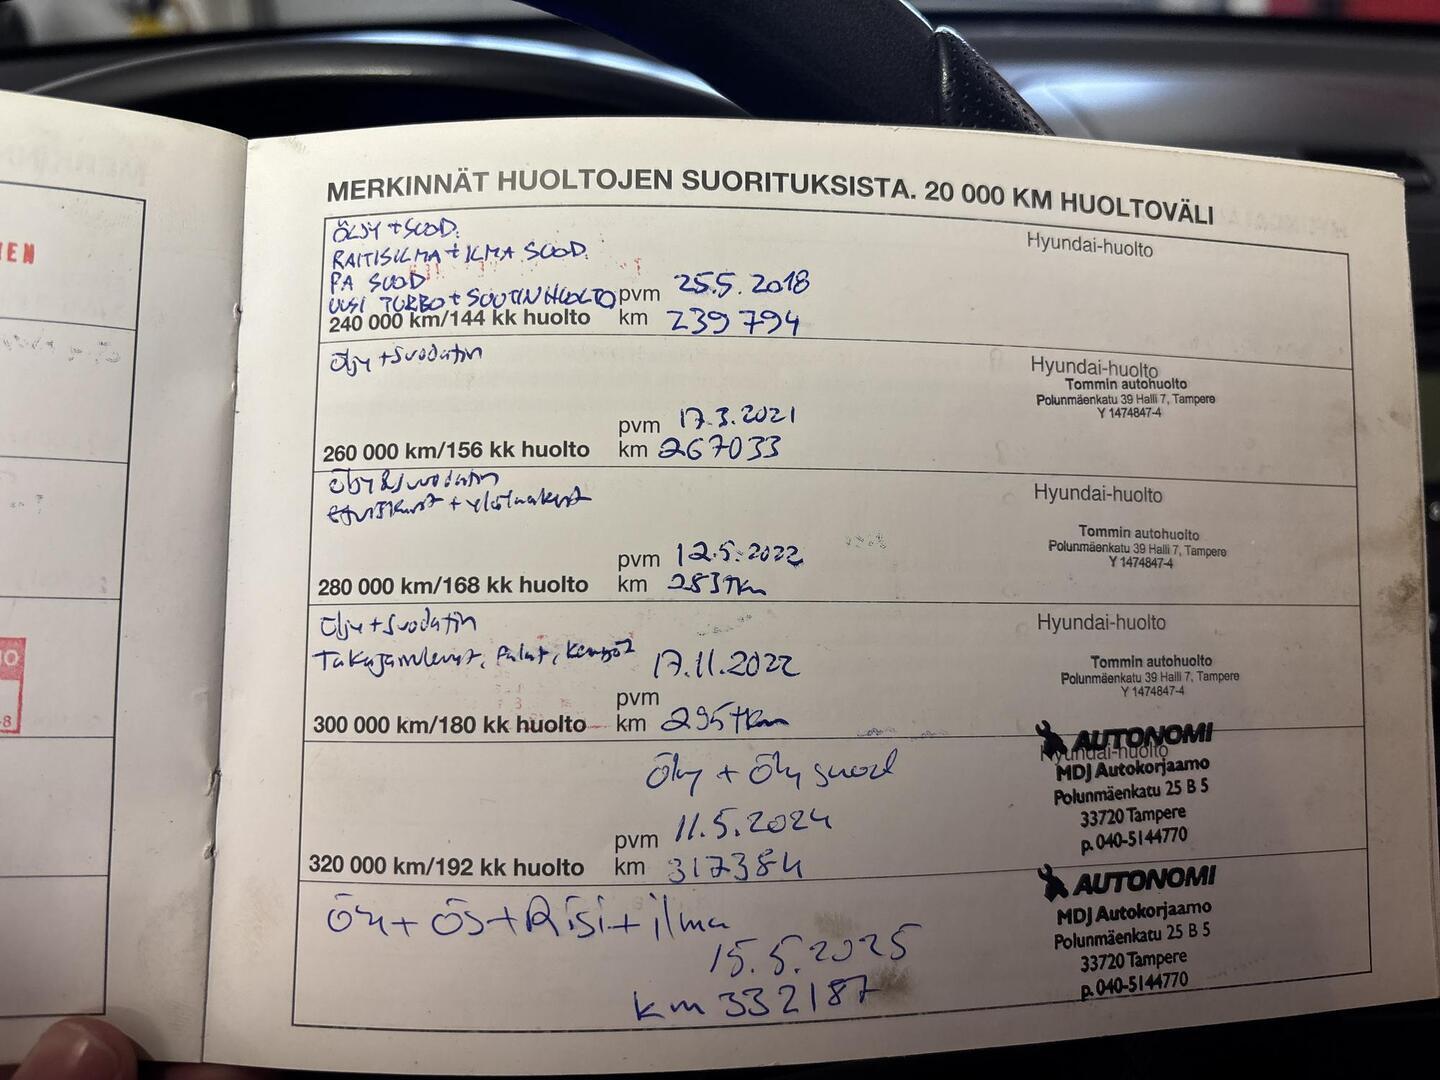 MERKINNÄT HUOLTOJEN SUORITUKSISTA. 20 000 KM HUOLTOVÄLI
ÖLJY + SUOD.
RAITISILMA + ILMA SUOD.
PA SUOD
UUSI TURBO + SUUTINHUOLTO
Hyundai-huolto
pvm 25.5.2018
240 000 km/144 kk huolto km 239 794
Öljy + suodatin
Hyundai-huolto
Tommin autohuolto
Polunmäenkatu 39 Halli 7, Tampere
Y 1474847-4
pvm 17.3.2021
260 000 km/156 kk huolto km 267033
Öljy & suodatin
+ ylätukset
Hyundai-huolto
Tommin autohuolto
Polunmäenkatu 39 Halli 7, Tampere
Y 1474847-4
pvm 12.5.2022
280 000 km/168 kk huolto km 283tkm
Öljy + suodatin
Takajarrulevyt, palat, kengät
Hyundai-huolto
Tommin autohuolto
Polunmäenkatu 39 Halli 7, Tampere
Y 1474847-4
17.11.2022
pvm
300 000 km/180 kk huolto km 295tkm
Öljy + Öljy suod
AUTONOMI
Hyundai-huolto
MDJ Autokorjaamo
Polunmäenkatu 25 B 5
33720 Tampere
p. 040-5144770
pvm 11.5.2024
320 000 km/192 kk huolto km 317384
Öly + ÖS + Risi + ilma
15.5.2025
km 332187
AUTONOMI
MDJ Autokorjaamo
Polunmäenkatu 25 B 5
33720 Tampere
p. 040-5144770